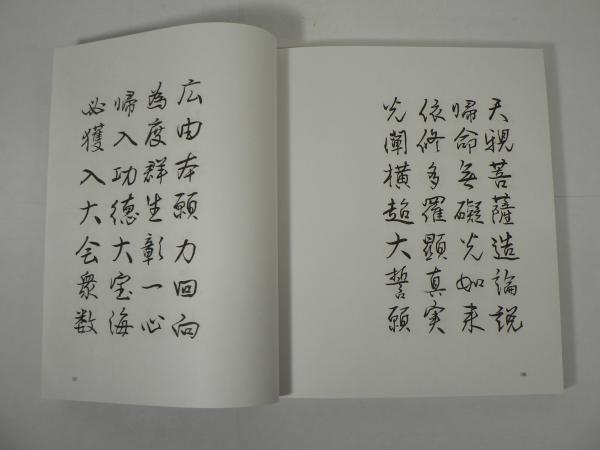 天親菩薩造論説
帰命無礙光如来
依修多羅顕真実
光闡横超大誓願
広由本願力回向
為度群生彰一心
帰入功徳大宝海
必獲入大会衆数